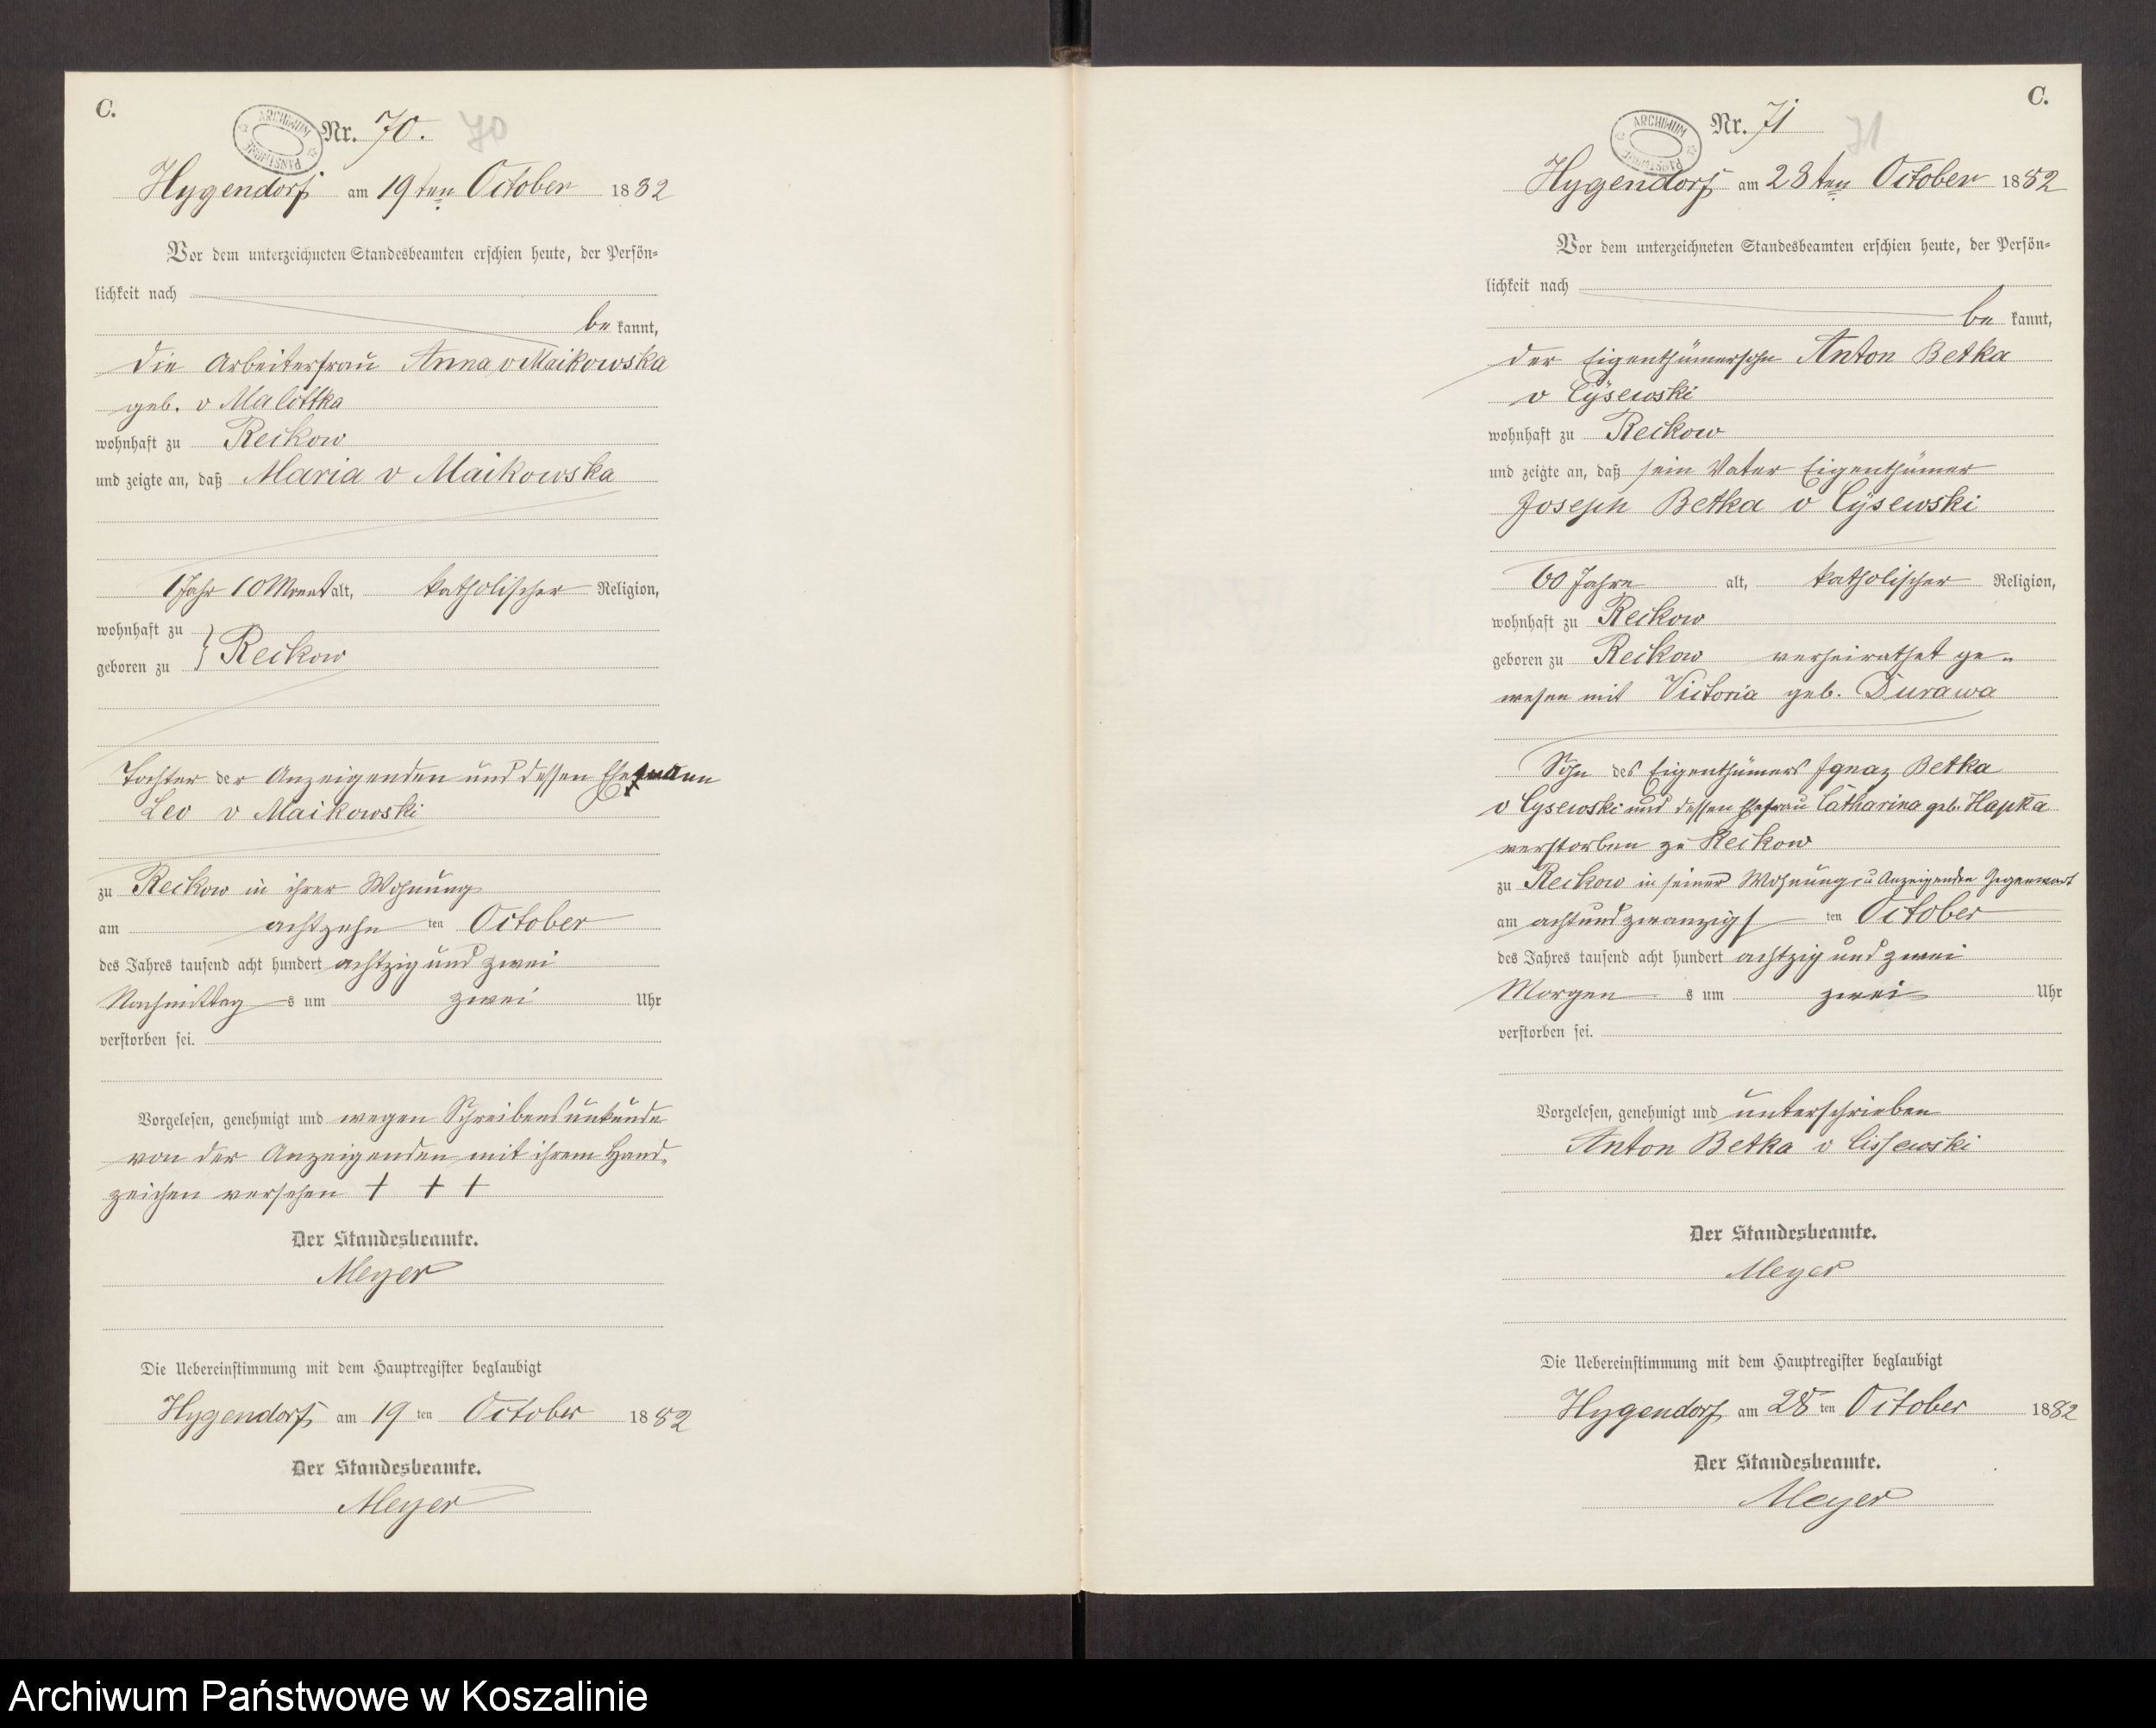 C.
ARCHIWUM PAŃSTWOWE
Nr. 70. 70
Hygendorf am 19ten October 1882
Vor dem unterzeichneten Standesbeamten erschien heute, der Persön-
lichkeit nach
be kannt,
die Arbeiterfrau Anna v Maikowska
geb. v Malottka
wohnhaft zu Reckow
und zeigte an, daß Maria v Maikowska
1 Jahr 10 Monat alt, katholischer Religion,
wohnhaft zu
geboren zu } Reckow
Tochter der Anzeigenden und dessen Ehemann
Leo v Maikowski
zu Reckow in ihrer Wohnung
am achtzehn ten October
des Jahres tausend acht hundert achtzig und zwei
Nachmittag s um zwei Uhr
verstorben sei.
Vorgelesen, genehmigt und wegen Schreibensunkunde
von der Anzeigenden mit ihrem Hand-
zeichen versehen + + +
Der Standesbeamte.
Meyer
Die Uebereinstimmung mit dem Hauptregister beglaubigt
Hygendorf am 19 ten October 1882
Der Standesbeamte.
Meyer
C.
ARCHIWUM PAŃSTWOWE
Nr. 71 71
Hygendorf am 28ten October 1882
Vor dem unterzeichneten Standesbeamten erschien heute, der Persön-
lichkeit nach
be kannt,
der Eigenthümersohn Anton Betka
v Cysewski
wohnhaft zu Reckow
und zeigte an, daß sein Vater Eigenthümer
Joseph Betka v Cysewski
60 Jahre alt, katholischer Religion,
wohnhaft zu Reckow
geboren zu Reckow verheirathet ge-
wesen mit Victoria geb. Durawa
Sohn des Eigenthümers Ignaz Betka
v Cysewski und dessen Ehefrau Catharina geb. Hapka
verstorben zu Reckow
zu Reckow in seiner Wohnung, u Anzeigenden Gegenwart
am achtundzwanzigs ten October
des Jahres tausend acht hundert achtzig und zwei
Morgen s um zwei Uhr
verstorben sei.
Vorgelesen, genehmigt und unterschrieben
Anton Betka v Cissewski
Der Standesbeamte.
Meyer
Die Uebereinstimmung mit dem Hauptregister beglaubigt
Hygendorf am 28 ten October 1882
Der Standesbeamte.
Meyer
Archiwum Państwowe w Koszalinie